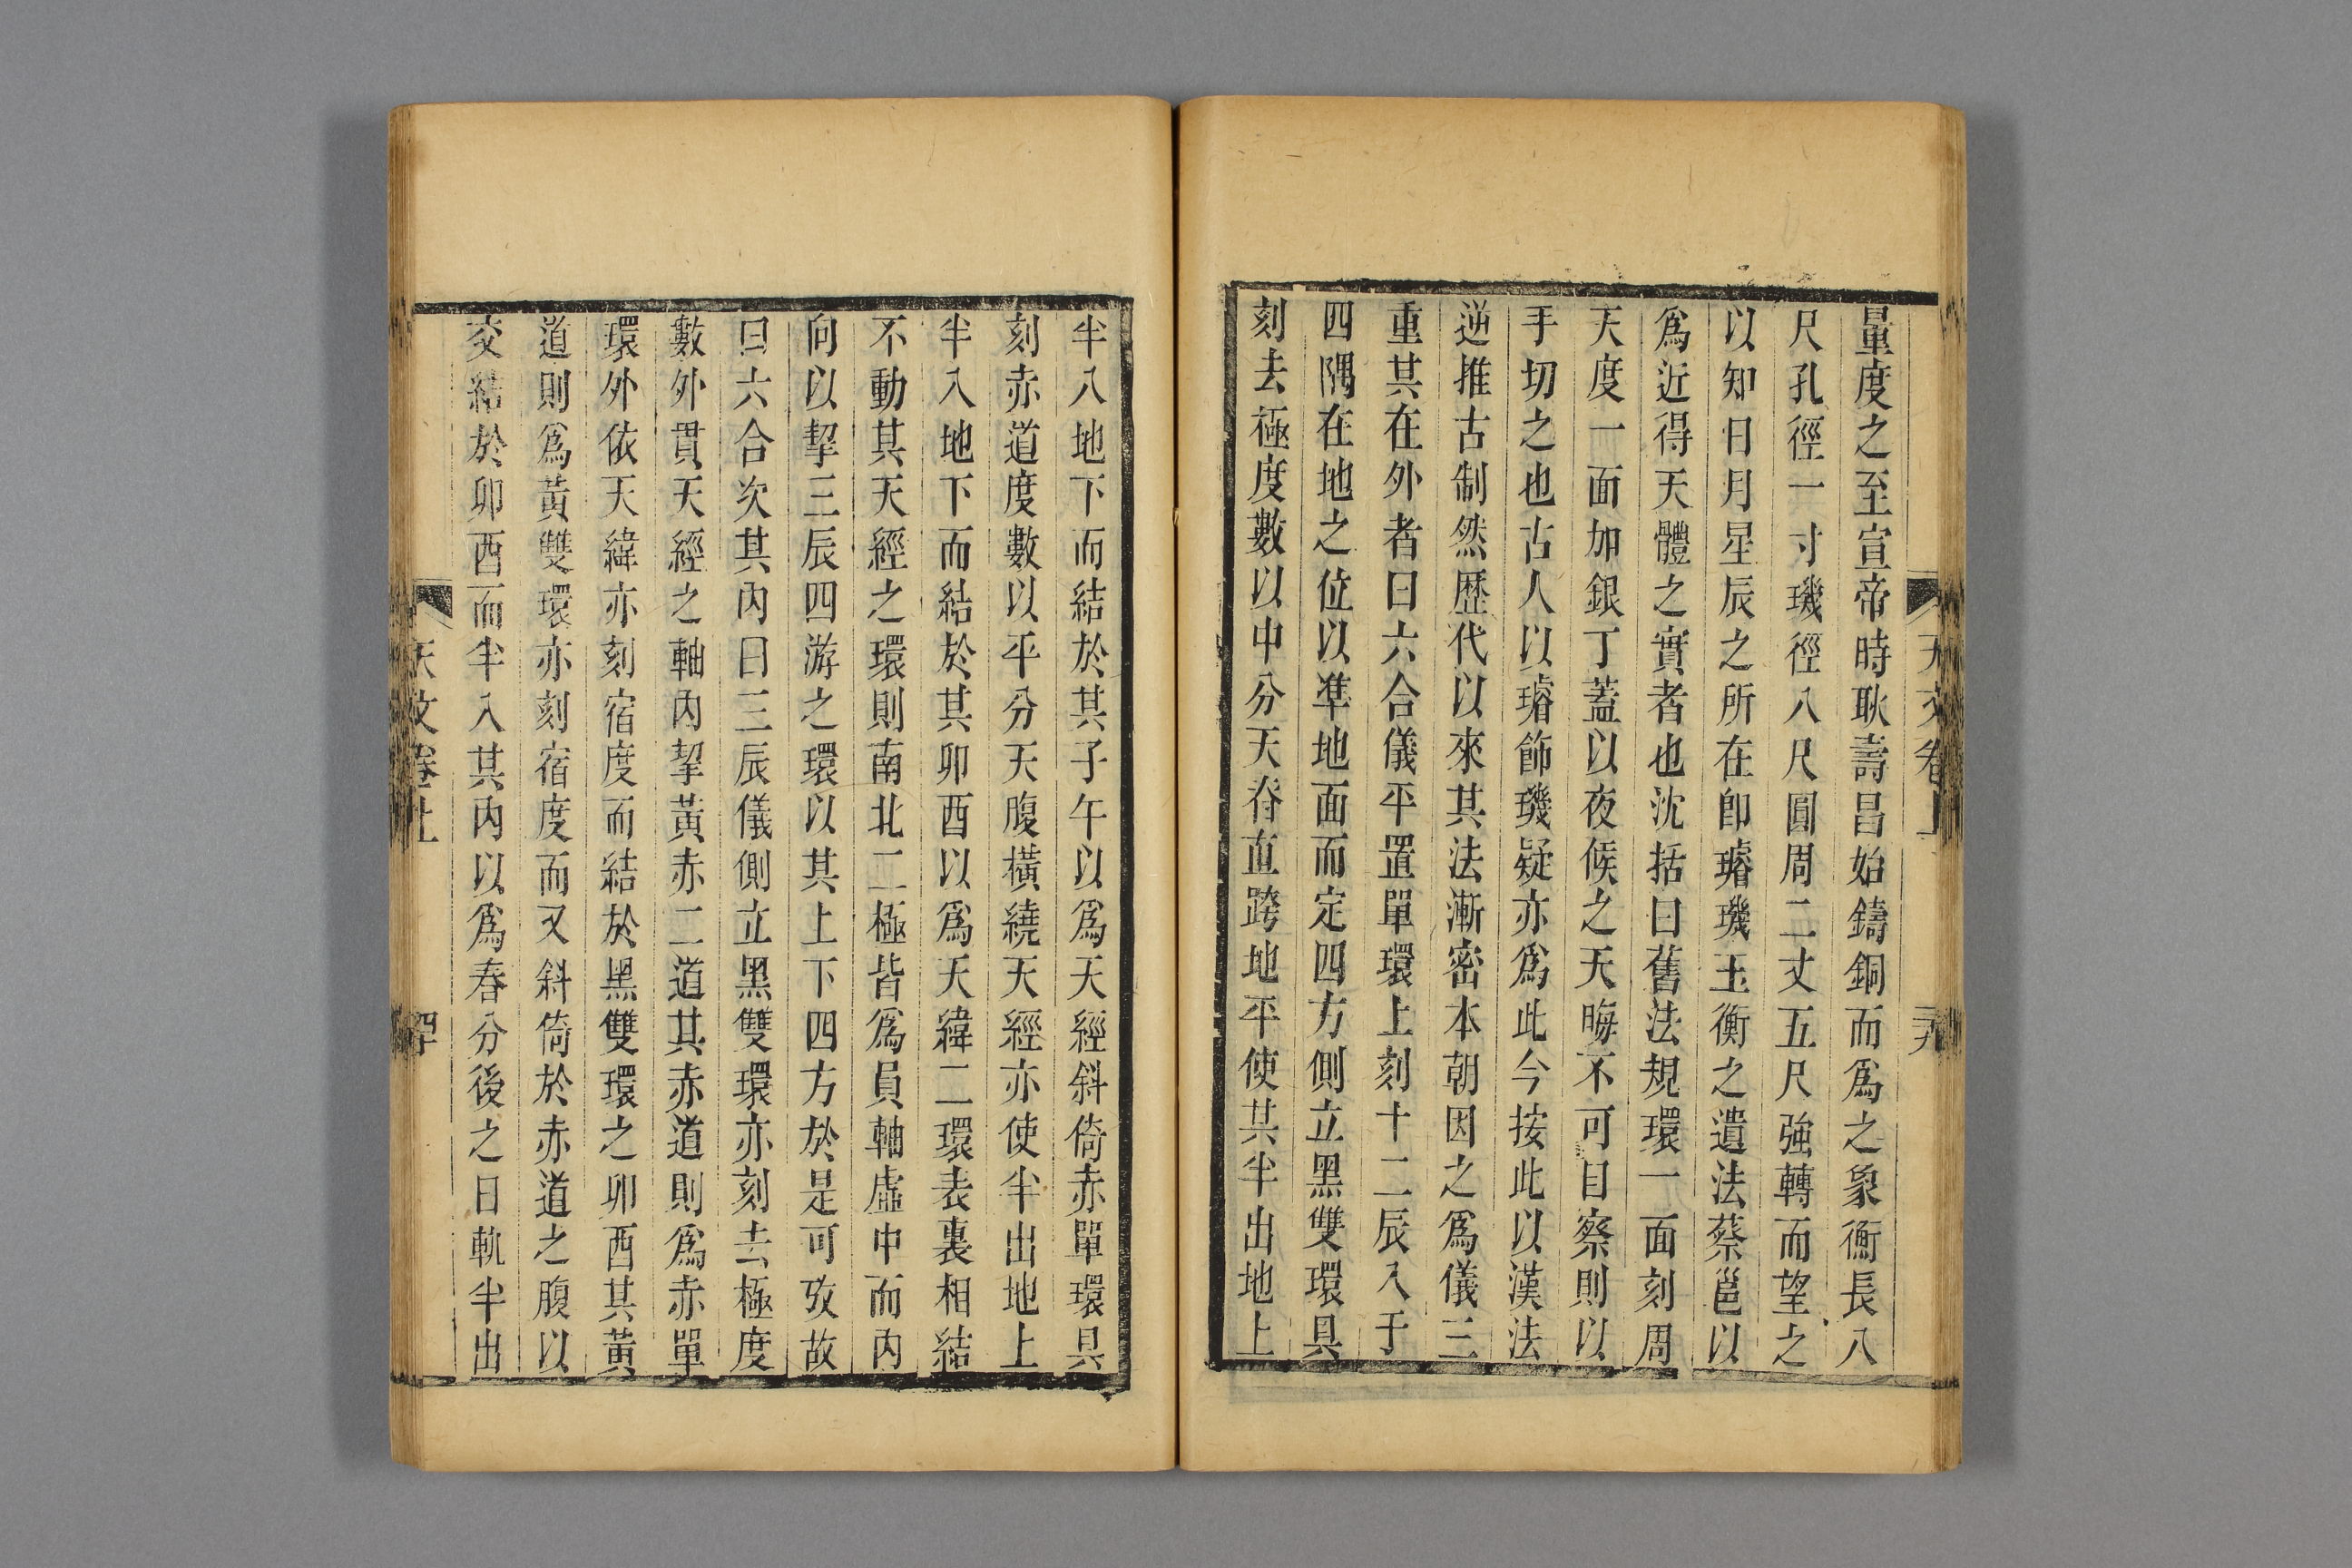 量度之至宣帝時耿壽昌始鑄銅而爲之象衡長八
尺孔徑一寸璣徑八尺圓周二丈五尺強轉而望之
以知日月星辰之所在卽璿璣玉衡之遺法蔡邕以
爲近得天體之實者也沈括曰舊法規環一面刻周
天度一面加銀丁蓋以夜候之天晦不可目察則以
手切之也古人以璿飾璣疑亦爲此今按此以漢法
逆推古制然歷代以來其法漸密本朝因之爲儀三
重其在外者曰六合儀平置單環上刻十二辰入于
四隅在地之位以準地面而定四方側立黑雙環具
刻去極度數以中分天脊直跨地平使其半出地上
天文卷上
三十九
半入地下而結於其子午以爲天經斜倚赤單環具
刻赤道度數以平分天腹橫繞天經亦使半出地上
半入地下而結於其卯酉以爲天緯二環表裏相結
不動其天經之環則南北二極皆爲員軸虛中而內
向以挈三辰四游之環以其上下四方於是可攷故
曰六合次其內曰三辰儀側立黑雙環亦刻去極度
數外貫天經之軸內挈黃赤二道其赤道則爲赤單
環外依天緯亦刻宿度而結於黑雙環之卯酉其黃
道則爲黃雙環亦刻宿度而又斜倚於赤道之腹以
交結於卯酉而半入其內以爲春分後之日軌半出
天文卷上
四十